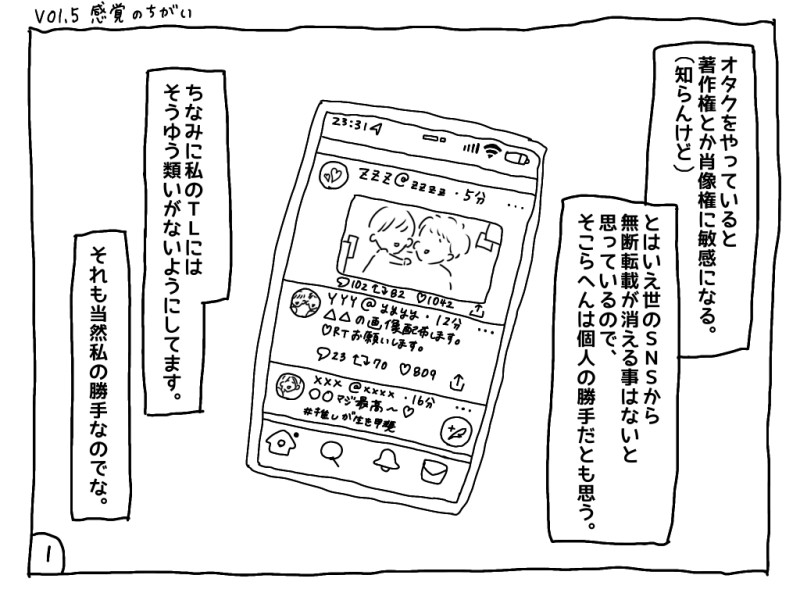 VOl.5 感覚のちがい
オタクをやっていると
著作権とか肖像権に敏感になる。
(知らんけど)
とはいえ世のSNSから
無断転載が消える事はないと
思っているので、
そこらへんは個人の勝手だとも思う。
23:31
ZZZ@zzzz・5分
102 82 1042
YYY@yyyy・12分
△△の画像配布します。
♡RTお願いします。
23 70 809
xxx @xxxx・16分
〇〇マジ最高〜♡
#推しが生き甲斐
ちなみに私のTLには
そうゆう類いがないようにしてます。
それも当然私の勝手なのでな。
1